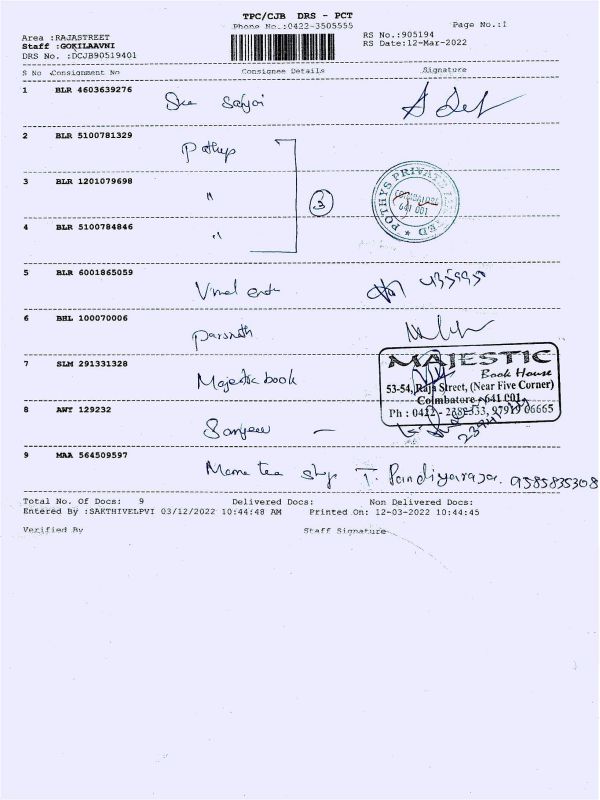 TPC/CJB DRS - PCT
Phone No.:0422-3505555
Page No.:1
Area :RAJASTREET
RS No.:905194
Staff :GOKILAAVNI
RS Date:12-Mar-2022
DRS No. :DCJB90519401
S No Consignment No Consignee Details Signature
1 BLR 4603639276
Sree
2 BLR 5100781329
Pothys
3 BLR 1201079698
"
3
POTHYS PRIVATE LIMITED
COIMBATORE
641 001
4 BLR 5100784846
"
5 BLR 6001865059
Vimal
6 BHL 100070006
7 SLM 291331328
Majestic book
MAJESTIC
Book House
53-54, Raja Street, (Near Five Corner)
Coimbatore - 641 001
Ph : 0422 - 2382333, 97919 06665
8 AWT 129232
Sanjeev -
9 MAA 564509597
Mama tea shop T. Pandiyaraja. 9585835308
Total No. Of Docs: 9 Delivered Docs: Non Delivered Docs:
Entered By :SAKTHIVELPVI 03/12/2022 10:44:48 AM Printed On: 12-03-2022 10:44:45
Verified By Staff Signature